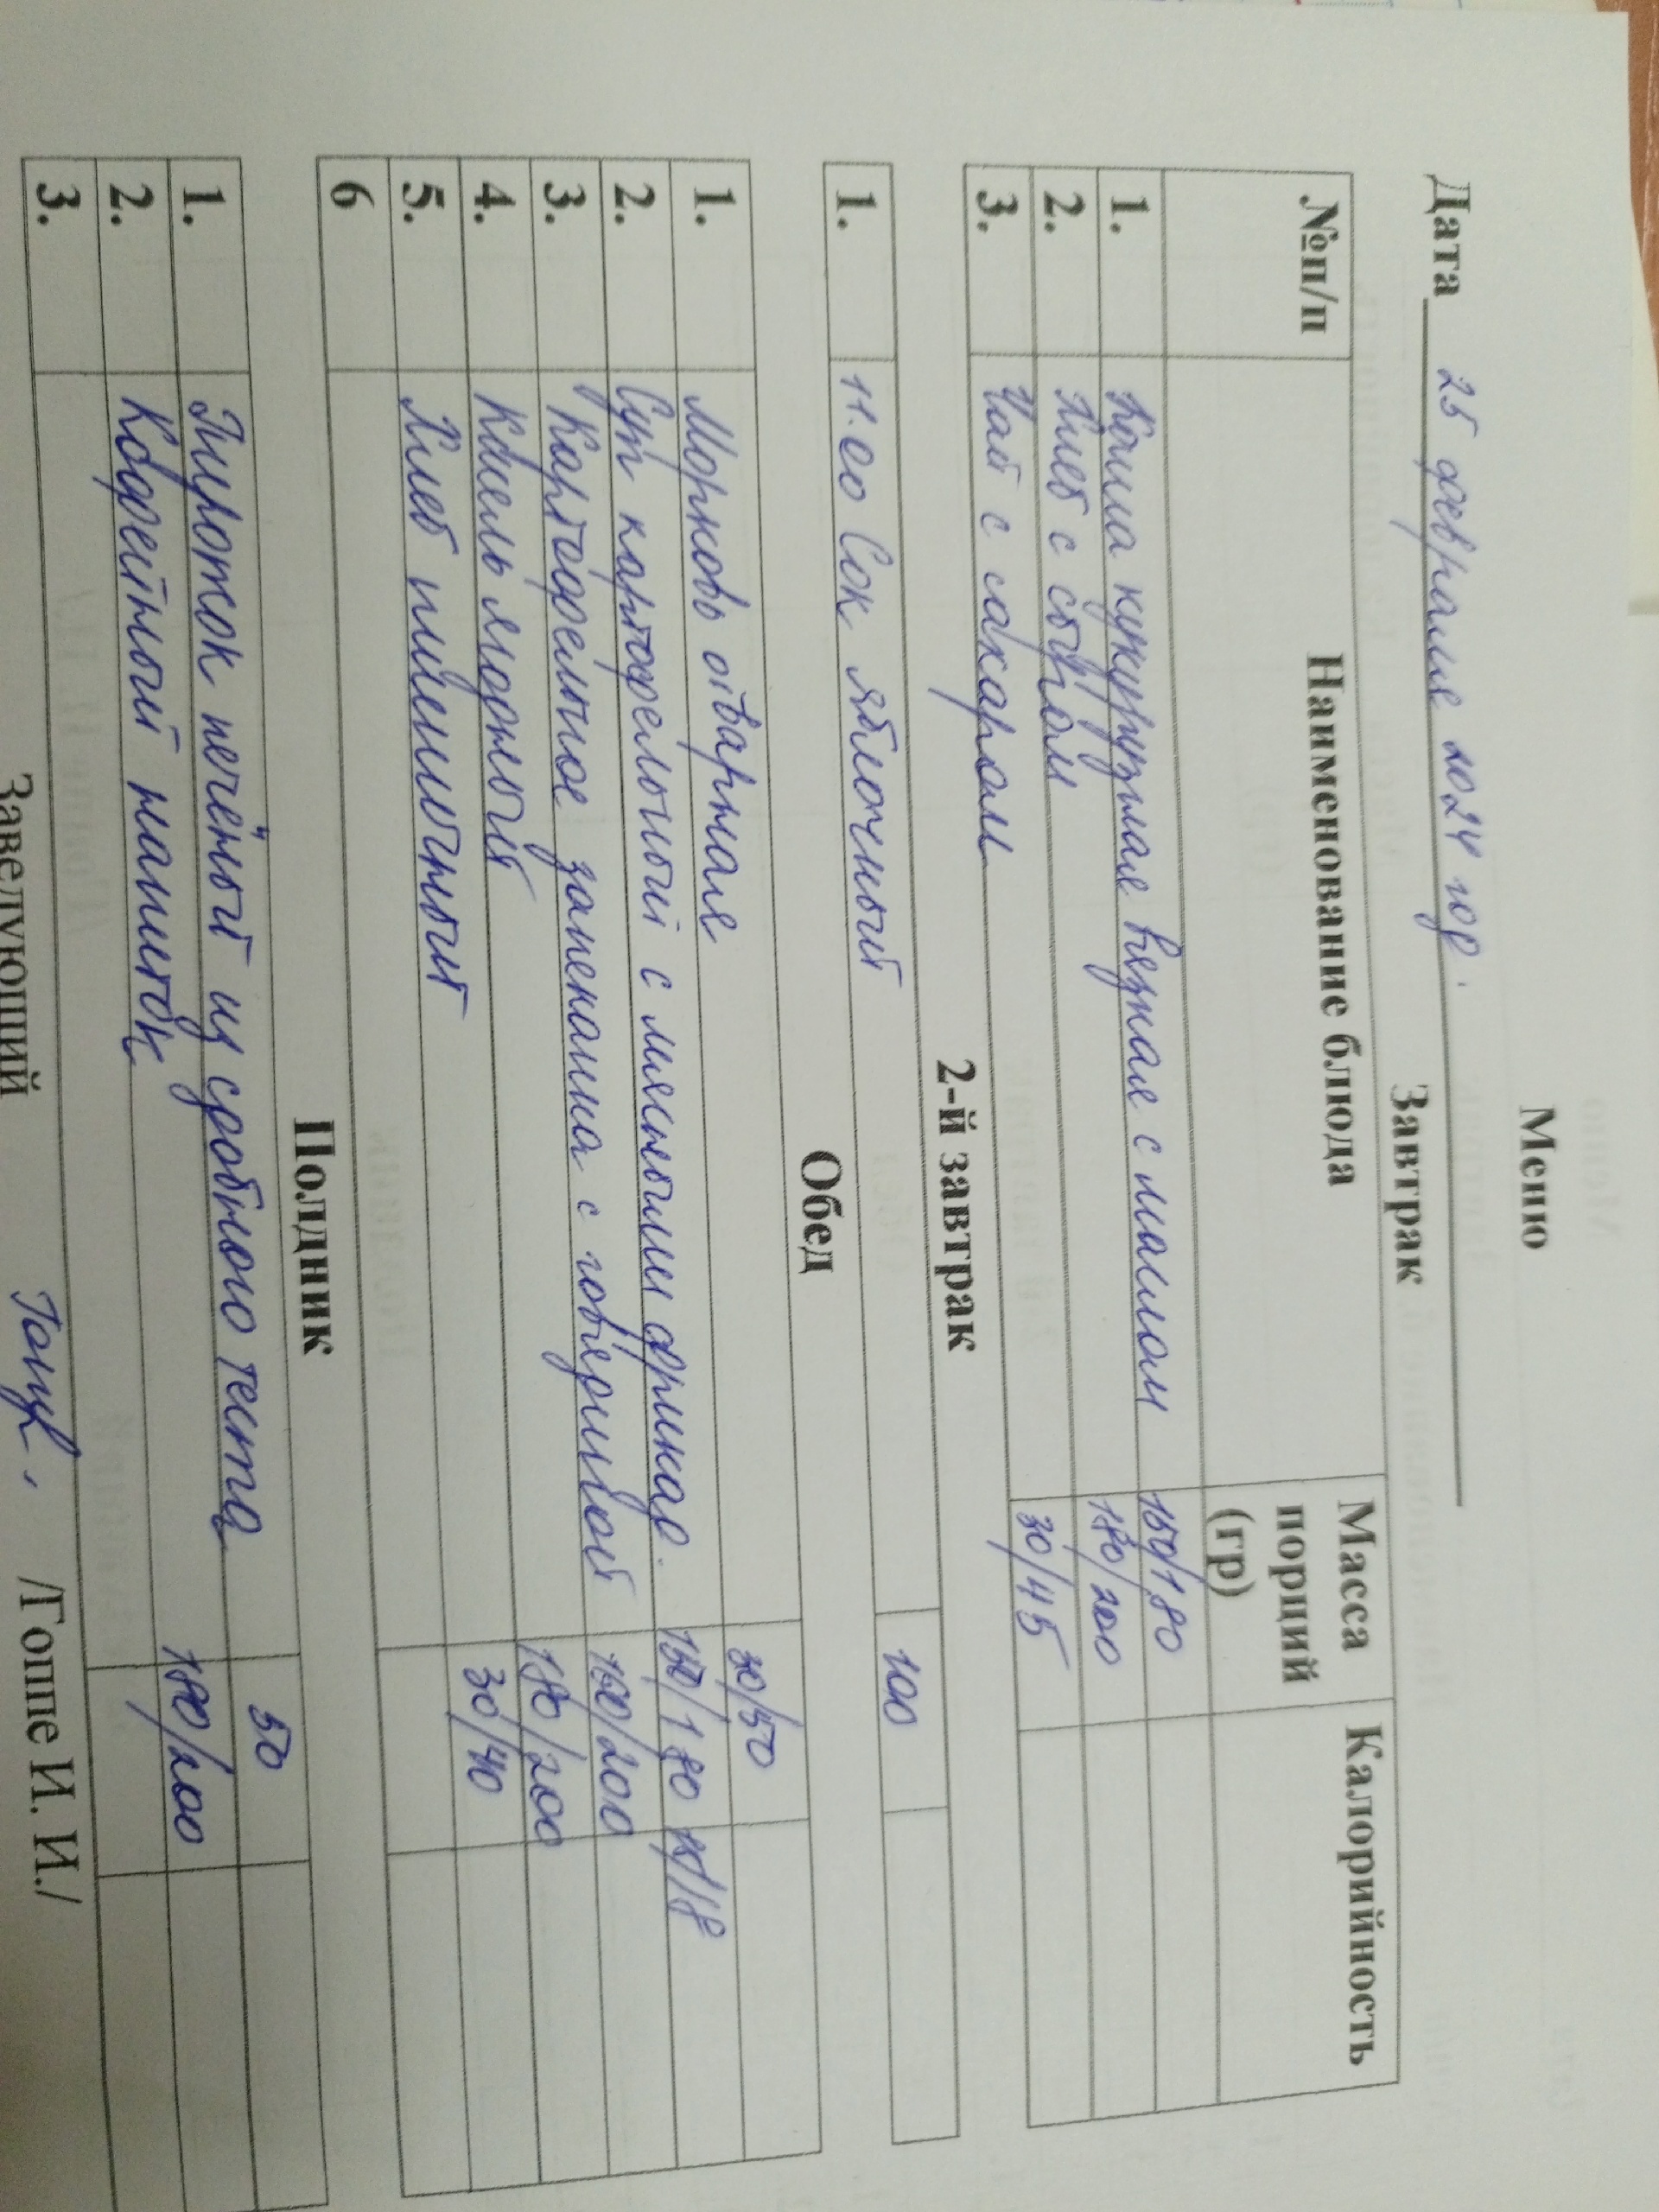 Меню
Дата 25 февраля 2024 год.
Завтрак
№п/п Наименование блюда Масса порций (гр) Калорийность
1. Каша кукурузная вязкая с маслом 150/180
2. Хлеб с сыром 180/200
3. Чай с сахаром 30/45
2-й завтрак
1. 11.00 Сок яблочный 100
Обед
1. Морковь отварная 30/50
2. Суп картофельный с мясными фрикад. 150/180 15/18
3. Картофельное запеканка с говядиной 160/200
4. Кисель ягодный 180/200
5. Хлеб пшеничный 30/40
6
Полдник
1. Пирожок печёный из сдобного теста 50
2. Кофейный напиток 180/200
3.
Заведующий /Гоппе И. И./